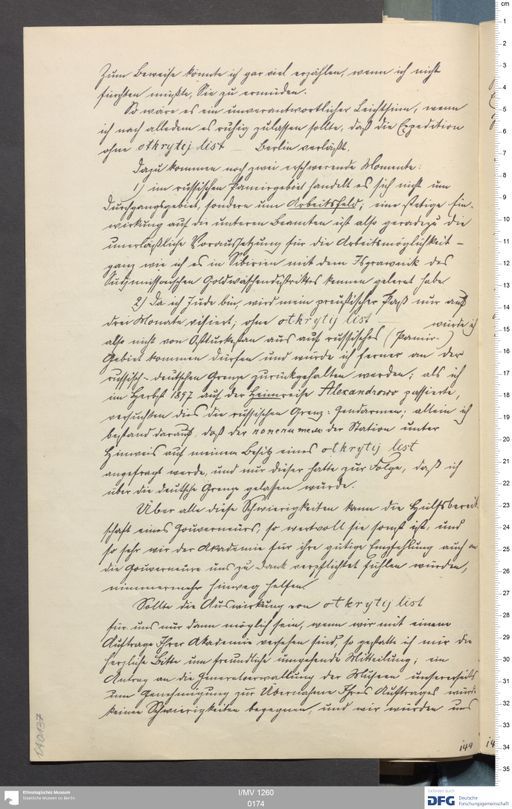 Zum Beweise könnte ich gar viel erzählen, wenn ich nicht
fürchten müßte, Sie zu ermüden.
So wäre es ein unverantwortlicher Leichtsinn, wenn
ich nach alledem es ruhig zulassen sollte, daß die Expedition
ohne otkrytyj list Berlin verläßt.
Dazu kommen noch zwei erschwerende Momente:
1) im russischen Pamirgebiet handelt es sich nicht um
Durchgangsgebiet, sondern um Arbeitsfeld; eine stetige Ein-
wirkung auf die unteren Beamten ist also geradezu die
unerläßliche Voraussetzung für die Arbeitsmöglichkeit -
ganz wie ich es in Sibirien mit dem Isprawnik des
Goldwäschendistriktes kennen gelernt habe
2) Da ich Jude bin, wird mein preußischer Paß nur auf
drei Monate visiert; ohne otkrytyj list würde ich
also nicht von Ostturkestan aus auf russisches (Pamir-)
Gebiet kommen dürfen und würde ich ferner an der
russisch-deutschen Grenze zurückgehalten werden; als ich
im Herbst 1897 auf der Heimreise Alexandrowo passierte,
versuchten dies die russischen Grenz-Gendarmen, allein ich
bestand darauf, daß der der Station unter
Hinweis auf meinen Besitz eines otkrytyj list
angefragt werde, und nur dieser hatte zur Folge, daß ich
über die deutsche Grenze gelassen wurde.
Über alle diese Schwierigkeiten kann die Hülfsbereit-
schaft eines Gouverneurs, so wertvoll sie sonst ist, und
so sehr wir der Akademie für ihre gütige Empfehlung auch an
die Gouverneure uns zu Dank verpflichtet fühlen würden,
nimmermehr hinweg helfen.
Sollte die Auswirkung von otkrytyj list
für uns nur dann möglich sein, wenn wir mit einem
Auftrage Ihrer Akademie versehen sind, so gestatte ich mir die
herzliche Bitte um freundliche umgehende Mitteilung; ein
Antrag an die Generalverwaltung der Museen unsererseits
um Genehmigung zur Übernahme Ihres Auftrages wird
keine Schwierigkeiten begegnen, und wir würden uns
149
Ethnologisches Museum
Staatliche Museen zu Berlin
I/MV 1260
0174
DFG Deutsche
Forschungsgemeinschaft
cm
1
2
3
4
5
6
7
8
9
10
11
12
13
14
15
16
17
18
19
20
21
22
23
24
25
26
27
28
29
30
31
32
33
34
35